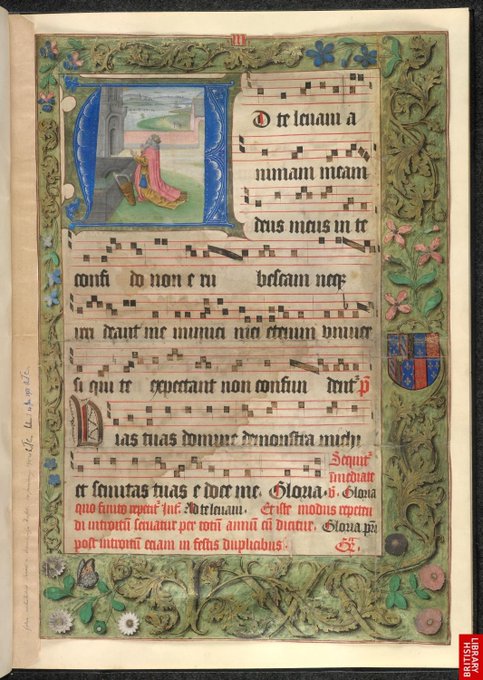 D te levavi a
nimam meam
deus meus in te
confi do non e ru bescam neq3
irri deant me inimici mei etenim univer
si qui te expectant non confun dent᷑ p̃
Vias tuas domine demonstra michi
et semitas tuas e doce me. Gloria.
Sequit᷑
īmediate
v̄. Gloria
quo finito repetit᷑ Int̄. Ad te levavi. Et iste modus repeten
di introitū servatur per totū annū cū dicitur. Gloria pr̄i
post introitū etiam in festis duplicibus.
BRITISH
LIBRARY